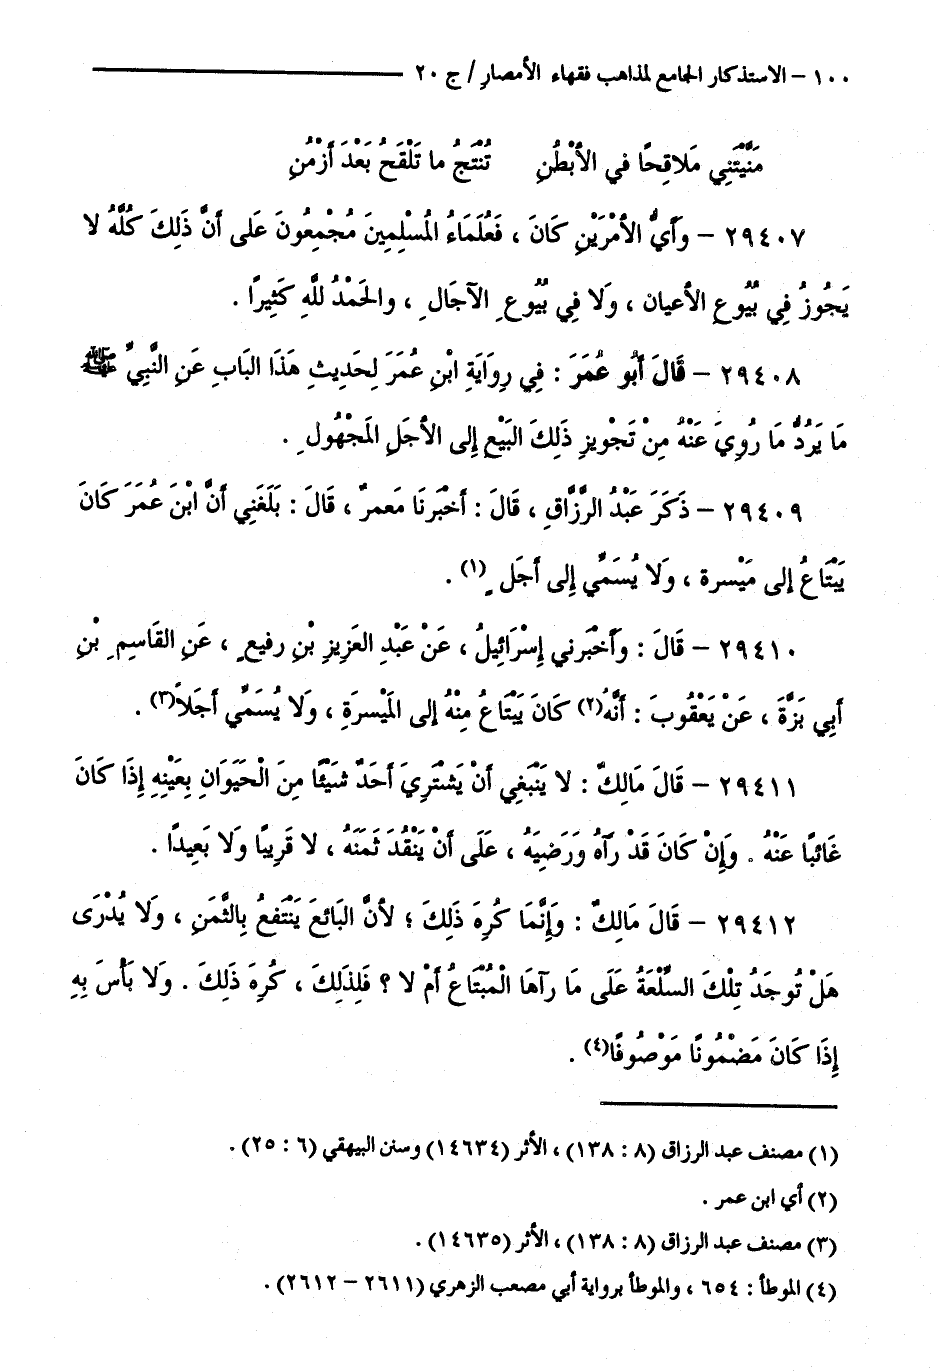 ١٠٠ – الاستذكار الجامع لمذاهب فقهاء الأمصارِ / ج ٢٠
مَنَّيْتَنِي مَلاقِحًا في الأبْطُنِ تُنْتَجُ ما تَلْقَحُ بَعْدَ أزْمُنِ
٢٩٤٠٧ – وَأيُّ الأمْرَيْنِ كَانَ ، فَعُلَمَاءُ المُسْلِمِينَ مُجْمِعُونَ عَلى أنَّ ذَلِكَ كُلَّهُ لا
يَجُوزُ فِي بُيُوعِ الأعيان ، وَلا فِي بُيُوعِ الآجَالِ ، والحَمْدُ للَّهِ كَثِيرًا .
٢٩٤٠٨ – قَالَ أبُو عُمَرَ : فِي رِوَايَةِ ابْنِ عُمَرَ لِحَدِيثِ هَذَا البَابِ عَنِ النَّبِيِّ ﷺ
مَا يَرُدُّ مَا رُوِيَ عَنْهُ مِنْ تَجْوِيزِ ذَلِكَ البَيْعِ إِلى الأجَلِ المَجْهُولِ .
٢٩٤٠٩ – ذَكَرَ عَبْدُ الرَّزَّاقِ ، قَالَ : أخْبَرَنَا مَعمرٌ ، قَالَ : بَلَغَنِي أنَّ ابْنَ عُمَرَ كَانَ
يَبْتَاعُ إلى مَيْسرة ، وَلا يُسَمِّي إِلى أجَلٍ (١) .
٢٩٤١٠ – قَالَ : وَأخْبَرني إِسْرَائِيلُ ، عَنْ عَبْدِ العَزِيزِ بْنِ رفيعٍ ، عَنِ القَاسِمِ بْنِ
أبِي بَزَّةَ ، عَنْ يَعْقُوبَ : أنَّهُ(٢) كَانَ يَبْتَاعُ مِنْهُ إلى المَيْسرَةِ ، وَلا يُسَمِّي أجَلاً(٣) .
٢٩٤١١ – قَالَ مَالِكٌ : لا يَنْبَغِي أنْ يَشْتَرِيَ أحَدٌ شَيْئًا مِنَ الْحَيَوَانِ بِعَيْنِهِ إِذَا كَانَ
غَائبًا عَنْهُ . وَإِنْ كَانَ قَدْ رَآهُ وَرَضِيَهُ ، عَلَى أنْ يَنْقُدَ ثَمَنَهُ ، لا قَرِيبًا وَلا بَعِيدًا .
٢٩٤١٢ – قَالَ مَالِكٌ : وَإِنَّمَا كُرِهَ ذَلِكَ ؛ لأنَّ البَائعَ يَنْتَفعُ بِالثَّمَنِ ، وَلا يُدْرَى
هَلْ تُوجَدُ تِلْكَ السِّلْعَةُ عَلَى مَا رَآهَا الْمُبْتَاعُ أمْ لا ؟ فَلِذَلِكَ ، كُرِهَ ذَلِكَ . وَلا بَأسَ بِهِ
إِذَا كَانَ مَضْمُونًا مَوْصُوفًا(٤) .
(١) مصنف عبد الرزاق (٨ : ١٣٨) ، الأثر (١٤٦٣٤) وسنن البيهقي (٦ : ٢٥) .
(٢) أي ابن عمر .
(٣) مصنف عبد الرزاق (٨ : ١٣٨) ، الأثر (١٤٦٣٥) .
(٤) الموطأ : ٦٥٤ ، والموطأ برواية أبي مصعب الزهري (٢٦١١ – ٢٦١٢) .